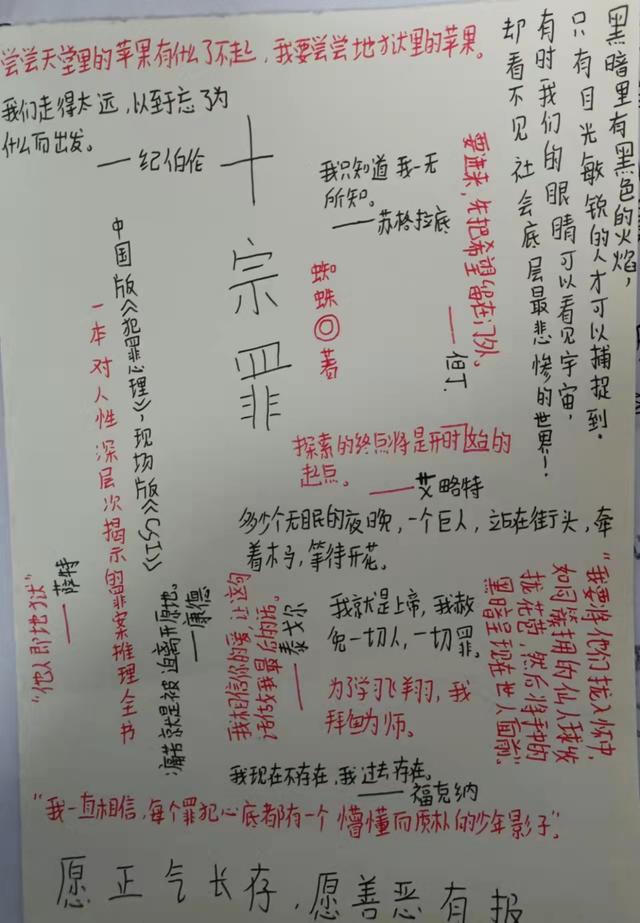 尝尝天堂里的苹果有什么了不起，我要尝尝地狱里的苹果。
我们走得太远，以至于忘了为
什么而出发。
——纪伯伦
十宗罪
蜘蛛◎著
我只知道我一无
所知。
——苏格拉底
要进来，先把希望留在门外。
——但丁
黑暗里有黑色的火焰，
只有目光敏锐的人才可以捕捉到.
有时我们的眼睛可以看见宇宙，
却看不见社会底层最悲惨的世界！
中国版《犯罪心理》，现场版《CSI》
一本对人性深层次揭示的罪案推理全书
探索的终点将是开时始的
起点。
——艾略特
多少个无眠的夜晚，一个巨人，站在街头，牵
着木马，等待开花。
"他人即地狱"
——萨特
就是被迫离开原地。
——康德
——泰戈尔
我就是上帝，我赦
免一切人，一切罪。
为了学习飞翔，我
拜 为师。
"我要将他们拢入怀中，
如同簇拥的仙人球发
拢花苞，然后将手中的
黑暗呈现在世人面前"
我现在不存在，我过去存在。
——福克纳
"我一直相信，每个罪犯心底都有一个懵懂而质朴的少年影子"。
愿正气长存，愿善恶有报